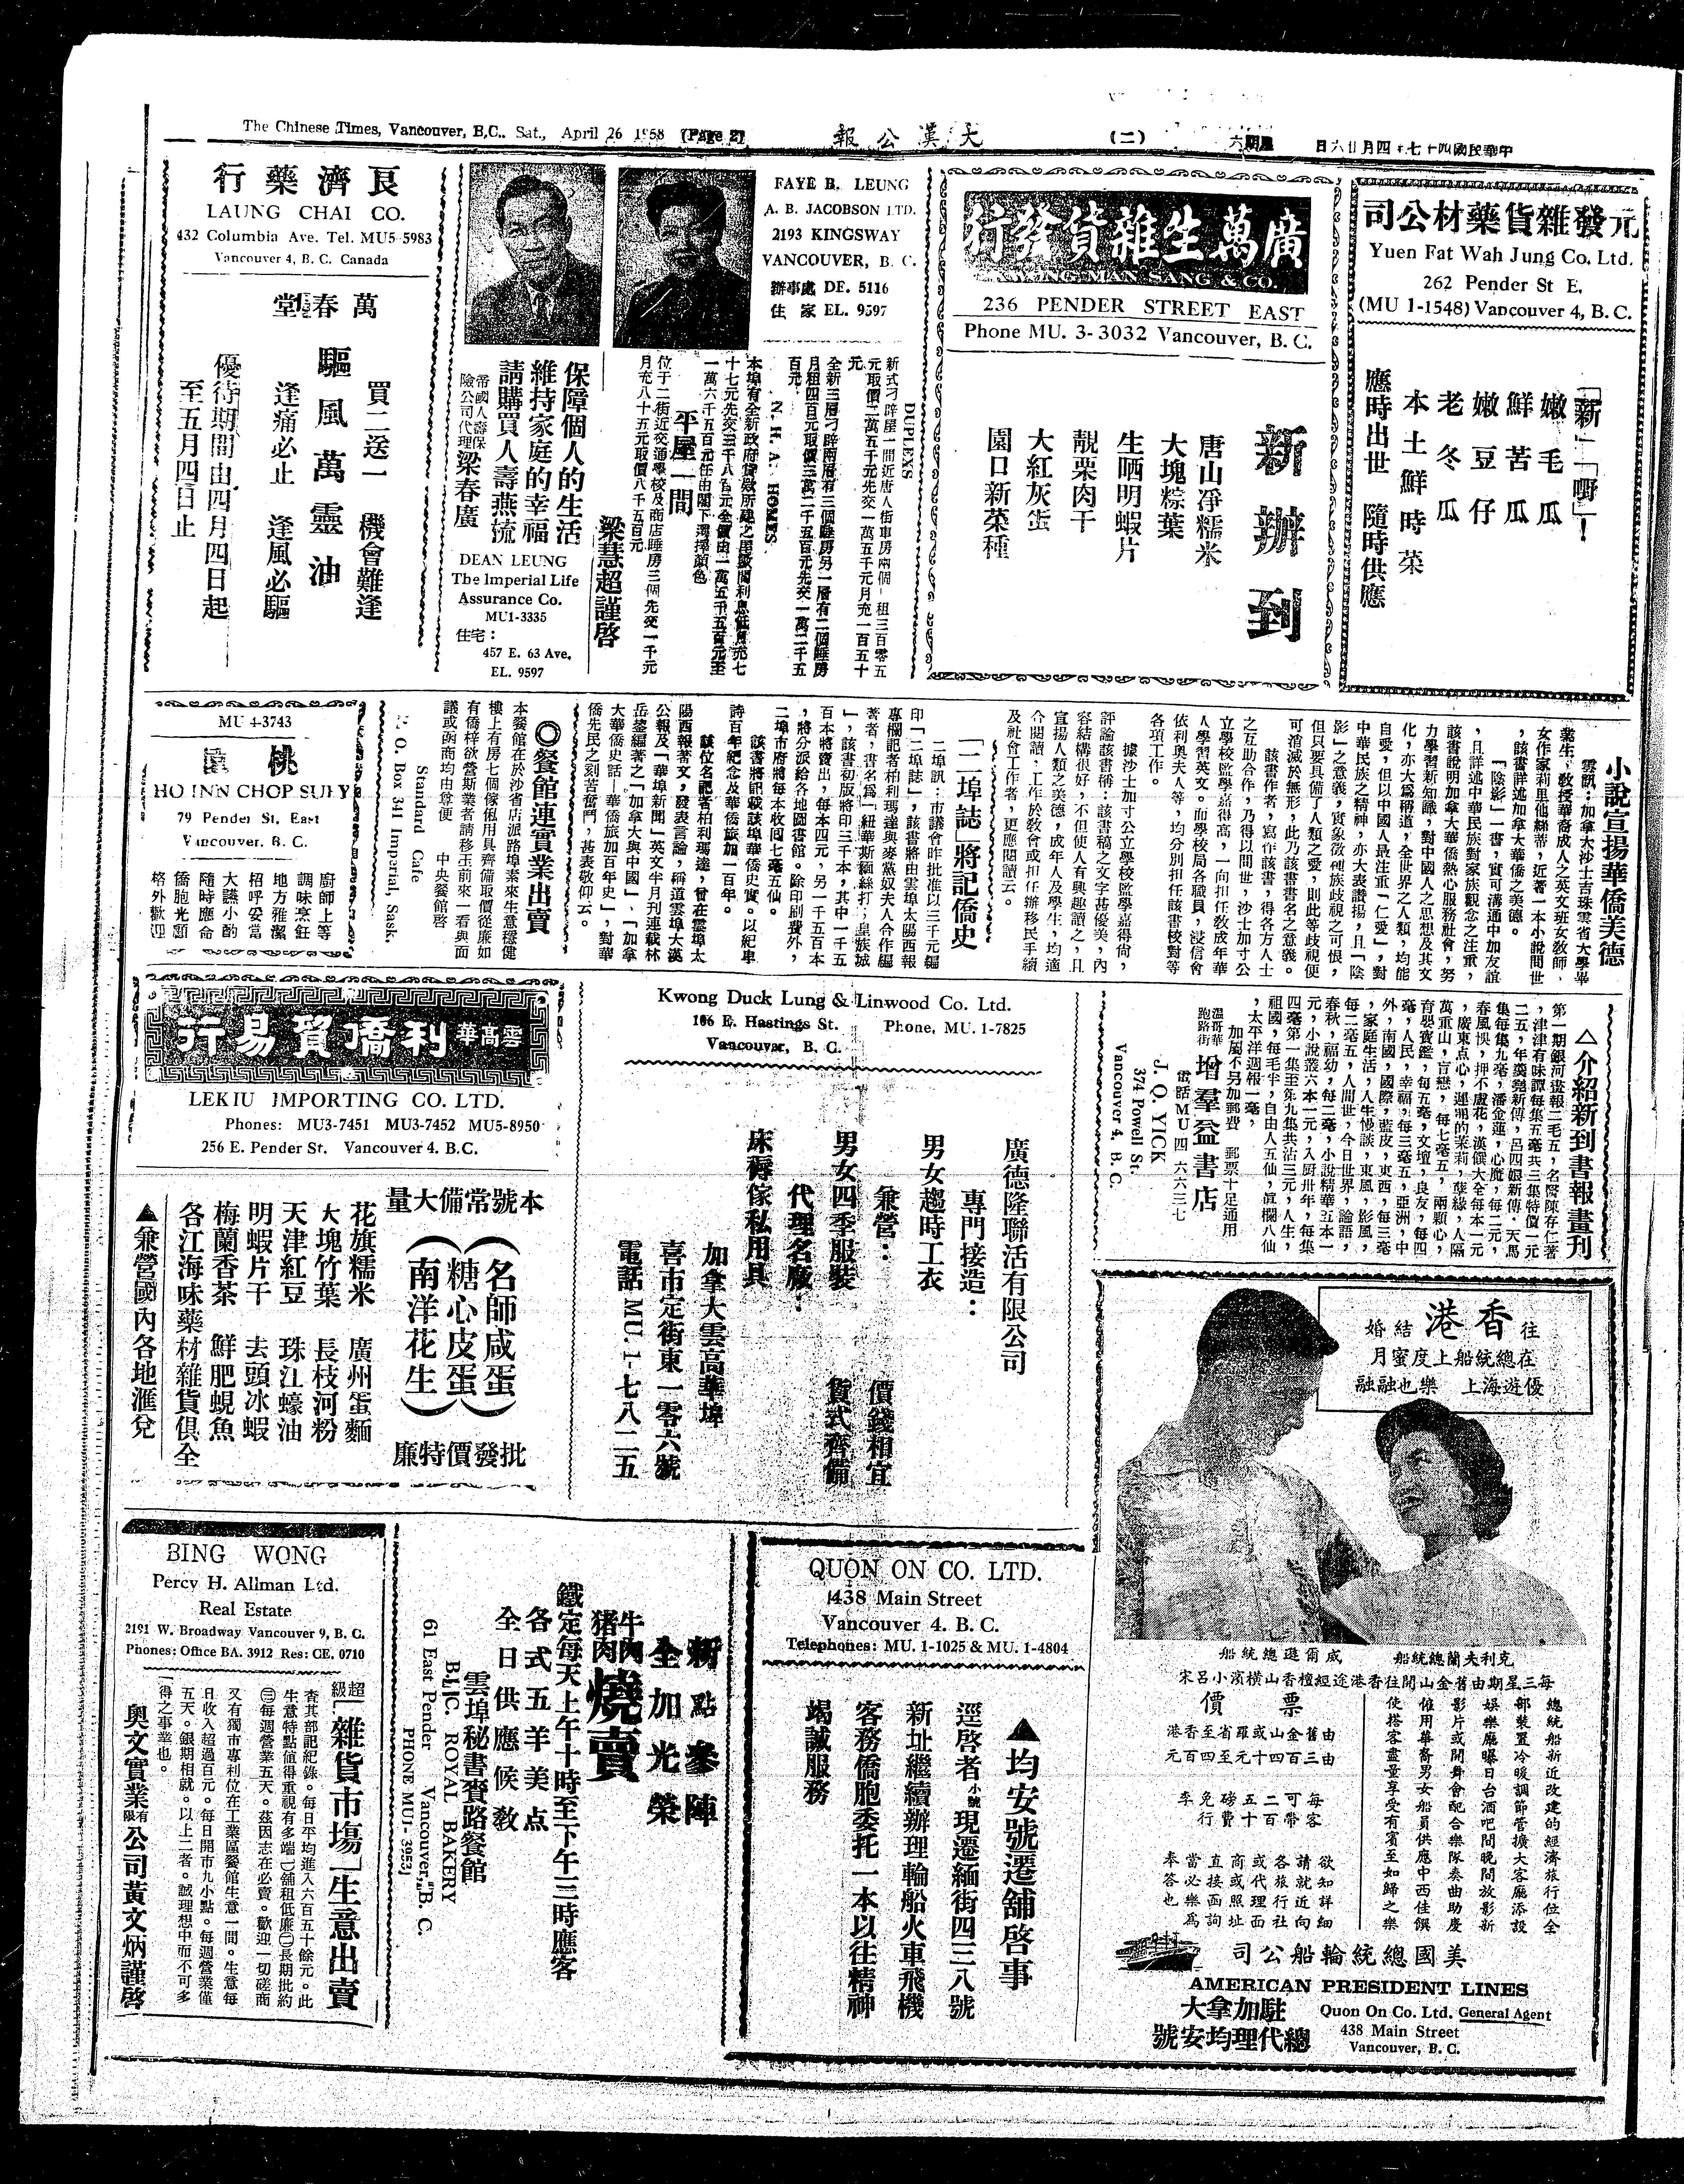 The Chinese Times, Vancouver, B.C.. Sat., April 26 1958 (Page 2)
大漢公報
(二)
星期六
中華民國四十七年四月廿六日
元發雜貨藥材公司
Yuen Fat Wah Jung Co. Ltd.
262 Pender St E.
(MU 1-1548) Vancouver 4, B. C.
「新」「嘢」!
嫩毛瓜
鮮苦瓜
嫩豆仔
老冬瓜
本土鮮時菜
應時出世 隨時供應
廣萬生雜貨發行
KWONG MAN SANG & CO.
236 PENDER STREET EAST
Phone MU. 3-3032 Vancouver, B. C.
新辦到
唐山淨糯米
大塊粽葉
生晒明蝦片
靚栗肉干
大紅灰蛋
園口新菜種
FAYE B. LEUNG
A. B. JACOBSON LTD.
2193 KINGSWAY
VANCOUVER, B. C.
辦事處 DE. 5116
住家 EL. 9597
DUPLEXS
新式刁辟屋一間近唐人街車房兩個租三百零五
元取價二萬五千元先交一萬五千元月充一百五十
元
全新三層刁辟兩層有三個睡房另一層有二個睡房
月租四百元取價三萬二千五百元先交一萬二千五
百元
N. H. A. HOMES
平屋一間
位于二街近交通學校及商店睡房三個先交一千元
月充八十五元取價八千五百元
梁慧超謹啓
保障個人的生活
維持家庭的幸福
請購買人壽燕梳
帝國人壽保
險公司代理梁春廣
DEAN LEUNG
The Imperial Life
Assurance Co.
MU1-3335
住宅:
457 E. 63 Ave,
EL. 9597
良濟藥行
LAUNG CHAI CO.
432 Columbia Ave. Tel. MU5-5983
Vancouver 4, B. C. Canada
萬春堂
驅風萬靈油
買二送一 機會難逢
逢痛必止 逢風必驅
優待期間由四月四日起
至五月四日止
小說宣揚華僑美德
雲訊:加拿大沙士吉珠雲省大學畢
業生,敎授華裔成人之英文班女敎師,
女作家莉里他綈蒂,近著一本小說問世
,該書詳述加拿大華僑之美德。
「陰影」一書,實可溝通中加友誼
,且詳述中華民族對家族觀念之注重,
該書說明加拿大華僑熱心服務社會,努
力學習新知識,對中國人之思想及其文
化,亦大爲稱道,全世界之人類,均能
自愛,但以中國人最注重「仁愛」,對
中華民族之精神,亦大表讚揚,且「陰
影」之意義,實象徵種族歧視之可恨,
但只要具備了人類之愛,則此等歧視便
可消滅於無形,此乃該書書名之意義。
該書作者,寫作該書,得各方人士
之互助合作,乃得以問世,沙士加寸公
立學校監學嘉得高,一向担任敎成年華
人學習英文。而學校局各職員,浸信會
依利奥夫人等,均分別担任該書校對等
各項工作。
據沙士加寸公立學校監學嘉得尚,
評論該書稱:該書稿之文字甚優美,內
容結構很好,不但使人有興趣讀之,且
宣揚人類之美德,成年人及學生,均適
合閱讀,工作於敎會或担任辦移民手續
及社會工作者,更應閱讀云。
「二埠誌」將記僑史
二埠訊:市議會昨批准以三千元編
印「二埠誌」,該書將由雲埠太陽西報
專欄記者柏利瑪達與麥黨奴夫人合作編
著者,書名爲「紐華斯緬絲打:皇族城
」,該書初版將印三千本,其中一千五
百本將賣出,每本四元,另一千五百本
,將分派給各地圖書館。除印刷費外,
二埠市府將每本收回七毫五仙。
該書將記載該埠華僑史實。以紀卑
詩百年紀念及華僑旅加一百年。
該位名記者柏利瑪達,曾在雲埠太
陽西報著文,發表言論,稱道雲埠大漢
公報及「華埠新聞」英文半月刊連載林
岳鋆編著之「加拿大與中國」,「加拿
大華僑史話—華僑旅加百年史」,對華
僑先民之刻苦奮鬥,甚表敬仰云。
◎餐館連實業出賣
本餐館在於沙省店派路埠素來生意穩健
樓上有房七個傢俬用具齊備取價從廉如
有僑梓欲營斯業者請移玉前來一看與面
議或函商均由尊便 中央餐館啓
Standard Cafe
P. O. Box 341 Imperial, Sask.
MU 4-3743
桃園
HO INN CHOP SUEY
79 Pender St. East
Vancouver, B. C.
廚師上等
調味烹飪
地方雅潔
招呼妥當
大讌小酌
隨時應命
僑胞光顧
格外歡迎
△介紹新到書報畫刊
J. Q. YICK
374 Powell St.
Vancouver 4, B. C.
溫哥華
跑路街 增羣益書店
電話MU四六六三七
加屬不另加郵費 郵票十足通用
Kwong Duck Lung & Linwood Co. Ltd.
106 E. Hastings St. Phone, MU. 1-7825
Vancouver, B. C.
廣德隆聯活有限公司
專門接造:
男女趨時工衣
兼營:
男女四季服裝
代理名廠:
床褥傢私用具
價錢相宜
貨式齊備
加拿大雲高華埠
喜市定街東一零六號
電話 MU. 1-七八二五
雲高華利僑貿易行
LEKIU IMPORTING CO. LTD.
Phones: MU3-7451 MU3-7452 MU5-8950
256 E. Pender St. Vancouver 4. B.C.
本號常備大量
(名師咸蛋)
(糖心皮蛋)
(南洋花生)
批發價特廉
花旗糯米 廣州蛋麵
大塊竹葉 長枝河粉
天津紅豆 珠江蠔油
明蝦片干 去頭冰蝦
梅蘭香茶 鮮肥鯢魚
各江海味藥材雜貨俱全
▲兼營國內各地滙兌
往香港結婚
在總統船上度蜜月
優遊海上 樂也融融
克利夫蘭總統船
威爾遜總統船
每三星期由舊金山開往香港途經檀香山橫濱小呂宋
票價
由舊金山或羅省至香港
由三百四十元至四百元
每客可帶二百五十磅行李免費
欲知詳細
請就近向
各旅行社
或代理面
商或照址
直接函詢
當必樂爲
奉答也
總統船新近改建的經濟旅行位全
部裝置冷暖調節管擴大客廳添設
娛樂廳曝日台酒吧間晚間放影新
影片或開舞會配合樂隊奏曲助慶
僱用華裔男女船員供應中西佳饌
使搭客盡量享受有賓至如歸之樂
美國總統輪船公司
AMERICAN PRESIDENT LINES
駐加拿大
總代理均安號
Quon On Co. Ltd. General Agent
438 Main Street
Vancouver, B. C.
QUON ON CO. LTD.
438 Main Street
Vancouver 4. B. C.
Telephones: MU. 1-1025 & MU. 1-4804
▲均安號遷舖啓事
逕啓者小號現遷緬街四三八號
新址繼續辦理輪船火車飛機
客務僑胞委托一本以往精神
竭誠服務
新點參陣
全加光榮
牛肉
猪肉 燒賣
鐵定每天上午十時至下午三時應客
各式五羊美点
全日供應候教
雲埠秘書賓路餐館
B. C. ROYAL BAKERY
61 East Pender Vancouver, B. C.
PHONE MU1-3953
BING WONG
Percy H. Allman Ltd.
Real Estate
2191 W. Broadway Vancouver 9, B. C.
Phones: Office BA. 3912 Res: CE. 0710
超級「雜貨市場」生意出賣
查其部記紀錄。每日平均進入六百五十餘元。此
生意特點值得重視有多端㊀舖租低廉㊁長期批約
㊂每週營業五天。茲因志在必賣。歡迎一切磋商
又有獨市專利位在工業區餐館生意一間。生意每
日收入超過百元。每日開市九小點。每週營業僅
五天。銀期相就。以上二者。誠理想中而不可多
得之事業也。
奥文實業有限公司黃文炳謹啓